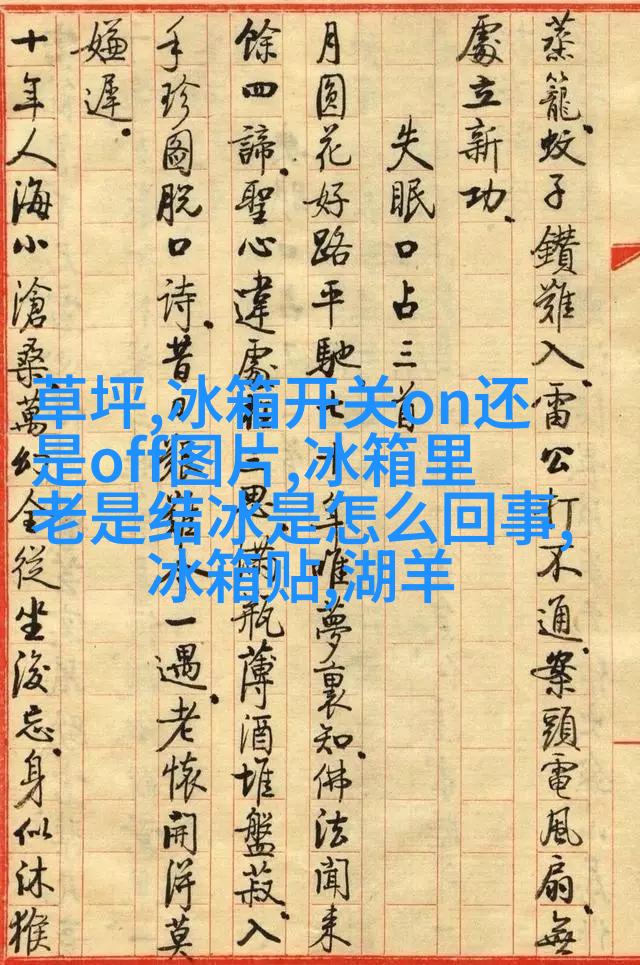 蒸籠蚊子鑽難入雷公打不通案頭電風扇無
處立新功
失眠口占三首
月圓花好路平馳七十年唯夢裏知佛法聞來
餘四諦聖心違處二思滿瓶薄酒堆盤菽入
手珍圖脫口詩昔一遇老懷開得莫
嫌遲
十年人海小滄桑萬幻全從坐後忘身似沐猴
草坪,冰箱开关on还
是off图片,冰箱里
老是结冰是怎么回事,
冰箱贴,湖羊